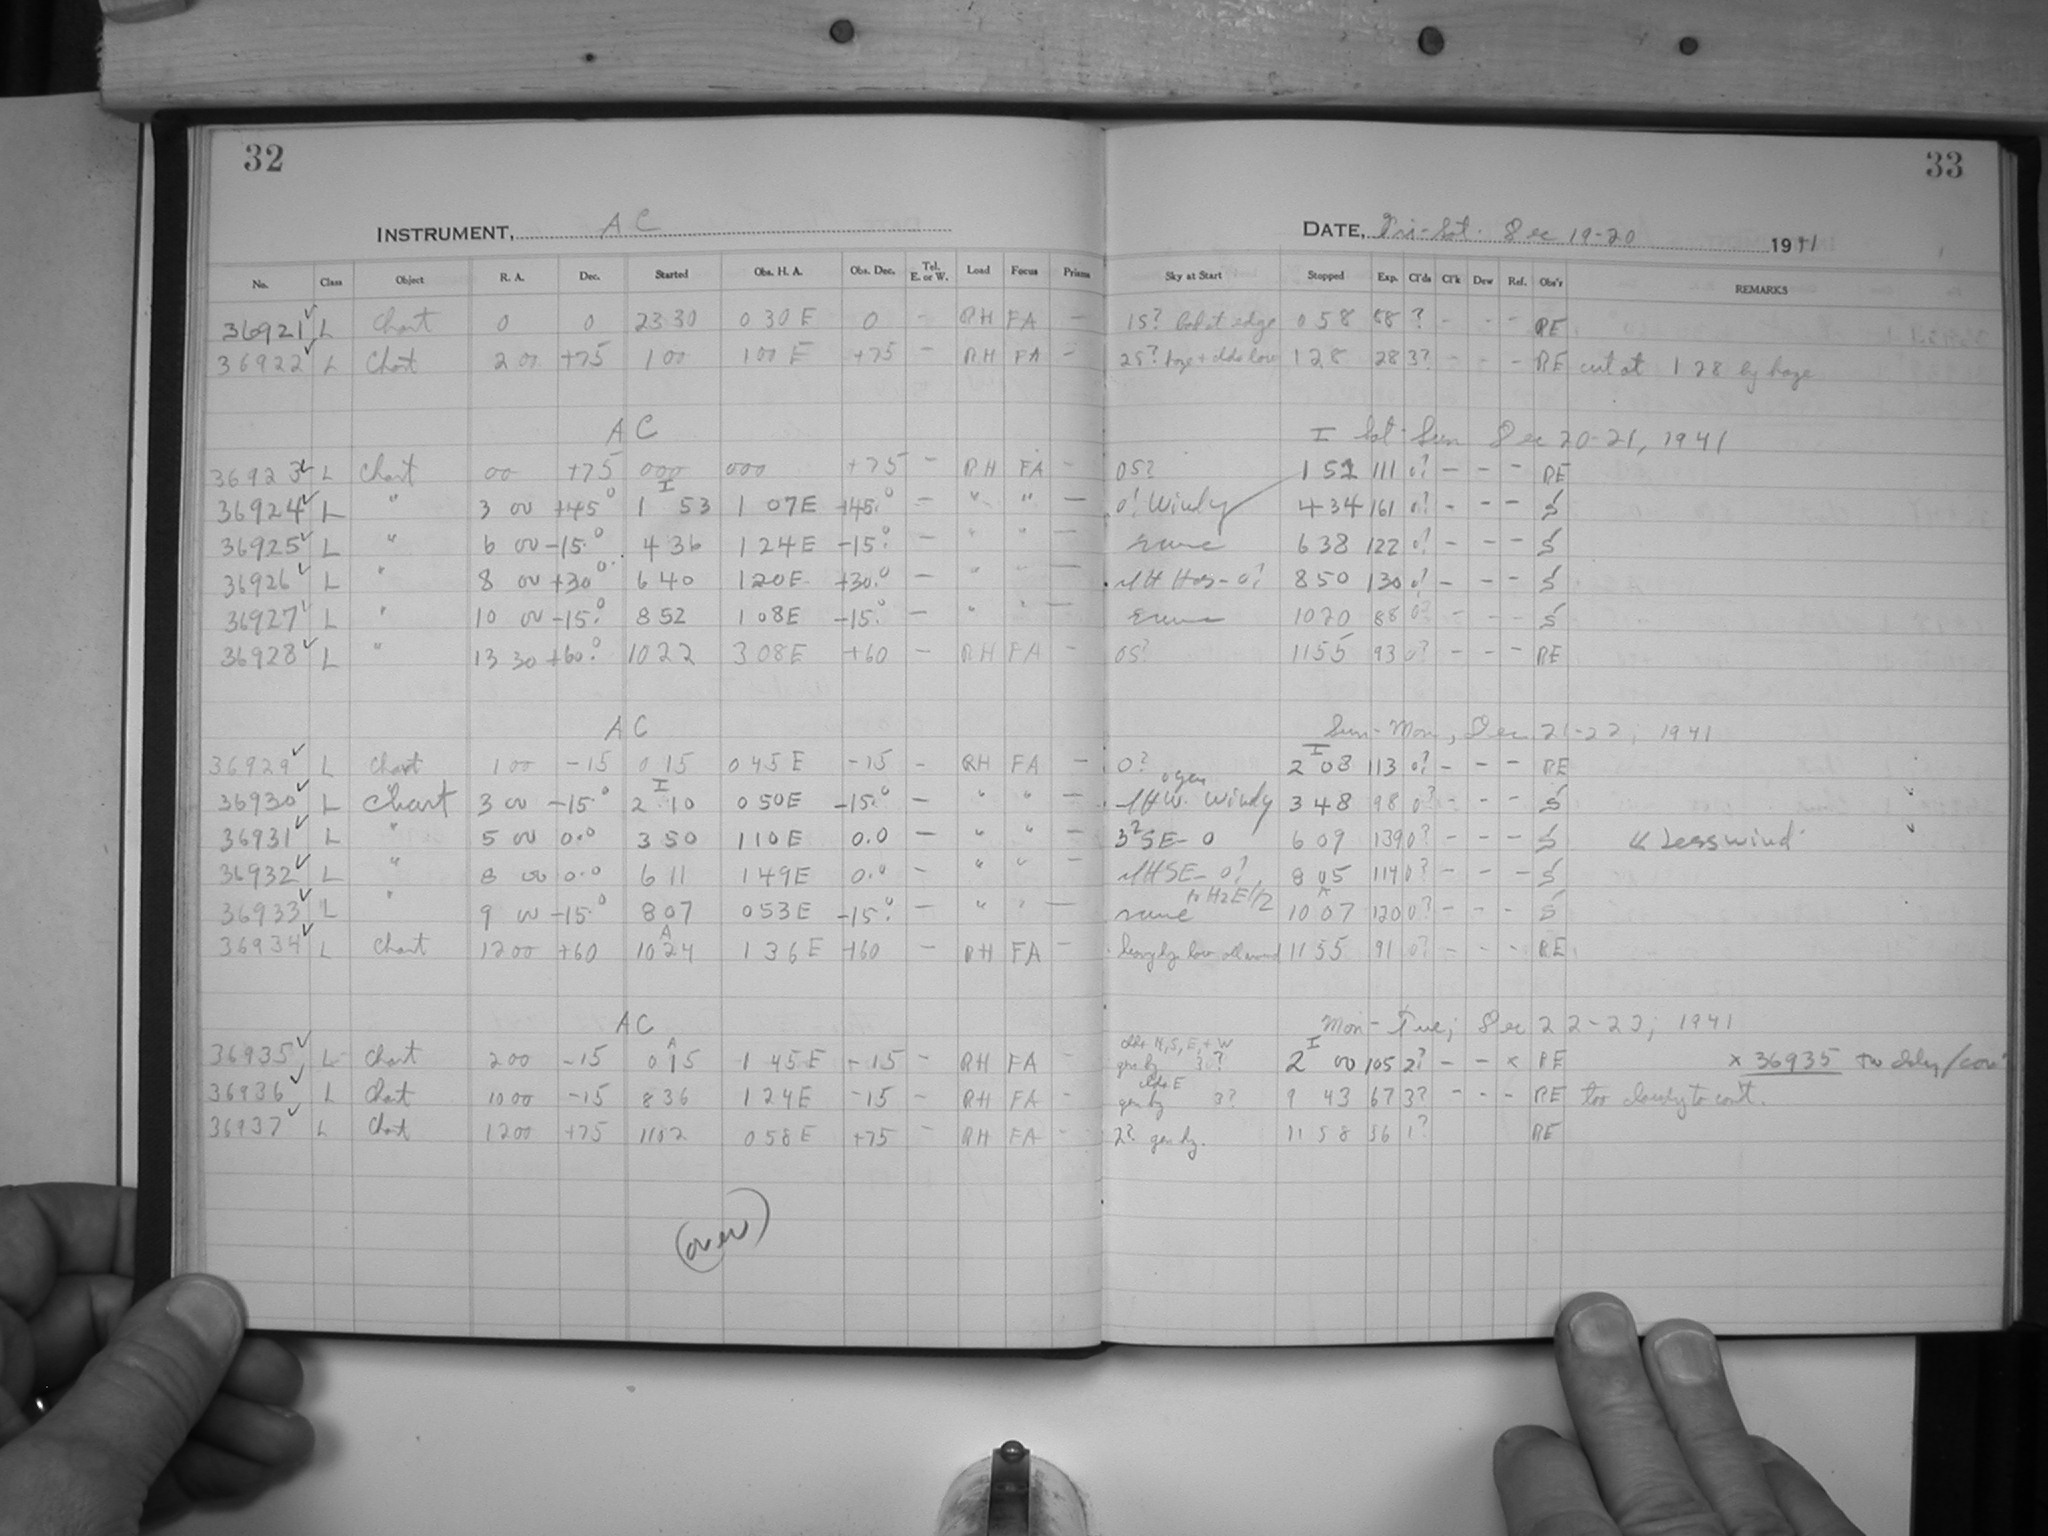 32
33
INSTRUMENT, A C
DATE, Fri-Sat. Dec 19-20 1941
No. Class Object R. A. Dec. Started Obs. H. A. Obs. Dec. Tel. E. or W. Load Focus Prisms Sky at Start Stopped Exp. Cl'ds Cl'k Dew Ref. Obs'r REMARKS
36921 ✓ L Chart 0 0 23 30 0 30 E 0 - RH FA - 15? edge 0 58 88 ? - - - RE
36922 ✓ L Chart 2 00 +75 1 00 1 00 E +75 - RH FA - 25? haze + clds low 1 28 28 3? - - - RE cut at 1 28 by haze
A C I Sat-Sun Dec 20-21, 1941
36923 ✓ L Chart 00 +75 000 000 +75 - RH FA - 05? 1 51 111 0? - - - RE
36924 ✓ L " 3 00 +45° I 1 53 1 07E +45.° - " " - 0? Windy 4 34 161 0? - - - S
36925 ✓ L " 6 00 -15.° 4 36 1 24E -15.° - " " - same 6 38 122 0? - - - S
36926 ✓ L " 8 00 +30° 6 40 1 20E +30.° - " " - 0? 8 50 130 0? - - - S
36927 ✓ L " 10 00 -15.° 8 52 1 08E -15.° - " " - same 10 20 88 0? - - - S
36928 ✓ L " 13 30 +60.° 10 22 3 08E +60 - RH FA - 05? 11 55 93 0? - - - RE
A C Sun-Mon, Dec 21-22, 1941
36929 ✓ L Chart 1 00 -15 0 15 0 45 E -15 - RH FA - 0? I 2 08 113 0? - - - RE
36930 ✓ L Chart 3 00 -15.° I 2 10 0 50E -15.° - " " - Windy 3 48 98 0? - - - S
36931 ✓ L " 5 00 0.0 3 50 1 10E 0.0 - " " - 3?SE-0 6 09 139 0? - - - S " Less wind
36932 ✓ L " 8 00 0.0 6 11 1 49E 0.0 - " " - 0? 8 05 114 0? - - - S
36933 ✓ L " 9 00 -15.° 8 07 0 53E -15.° - " " - same 10 07 120 0? - - - S
36934 ✓ L Chart 12 00 +60 A 10 24 1 36 E +60 - RH FA - low all around 11 55 91 0? - - - RE
A C Mon-Tue, Dec 22-23, 1941
36935 ✓ L Chart 2 00 -15 A 0 15 1 45 E -15 - RH FA - clds N, S, E, + W gen hy 3? I 2 00 105 2? - - x RE x 36935
36936 ✓ L Chart 10 00 -15 8 36 1 24E -15 - RH FA - clds E gen hy 3? 9 43 67 3? - - - RE too cloudy to cont.
36937 ✓ L Chart 12 00 +75 11 02 0 58 E +75 - RH FA - 2? gen hy. 11 58 56 1? RE
(over)